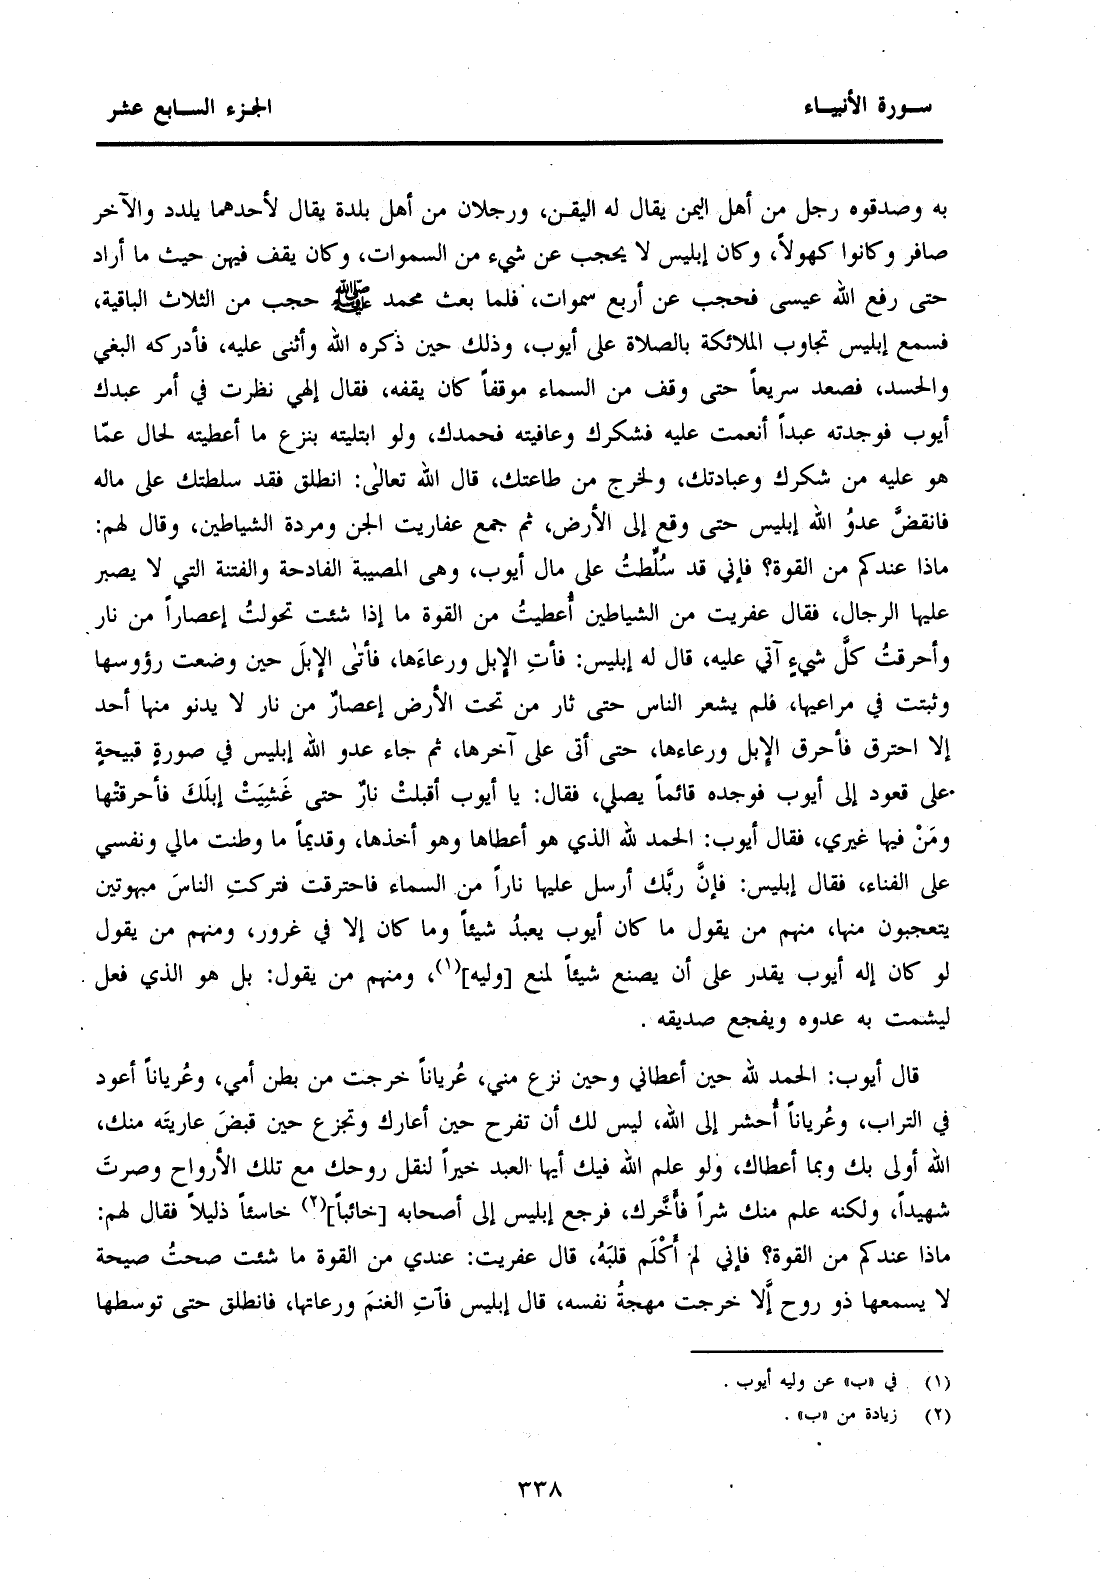 سورة الأنبياء
الجزء السابع عشر
به وصدقوه رجل من أهل اليمن يقال له اليقن، ورجلان من أهل بلدة يقال لأحدهما يلدد والآخر
صافر وكانوا كهولاً، وكان إبليس لا يحجب عن شيء من السموات، وكان يقف فيهن حيث ما أراد
حتى رفع الله عيسى فحجب عن أربع سموات، فلما بعث محمد ﷺ حجب من الثلاث الباقية،
فسمع إبليس تجاوب الملائكة بالصلاة على أيوب، وذلك حين ذكره الله وأثنى عليه، فأدركه البغي
والحسد، فصعد سريعاً حتى وقف من السماء موقفاً كان يقفه، فقال إلهي نظرت في أمر عبدك
أيوب فوجدته عبداً أنعمت عليه فشكرك وعافيته فحمدك، ولو ابتليته بنزع ما أعطيته لحال عمّا
هو عليه من شكرك وعبادتك، ولخرج من طاعتك، قال الله تعالى: انطلق فقد سلطتك على ماله
فانقضَّ عدوُ الله إبليس حتى وقع إلى الأرض، ثم جمع عفاريت الجن ومردة الشياطين، وقال لهم:
ماذا عندكم من القوة؟ فإني قد سُلِّطتُ على مال أيوب، وهى المصيبة الفادحة والفتنة التي لا يصبر
عليها الرجال، فقال عفريت من الشياطين أُعطيتُ من القوة ما إذا شئت تحولتُ إعصاراً من نار
وأحرقتُ كلَّ شيءٍ آتي عليه، قال له إبليس: فأتِ الإبل ورعاءَها، فأتى الإبلَ حين وضعت رؤوسها
وثبتت في مراعيها، فلم يشعر الناس حتى ثار من تحت الأرض إعصارٌ من نار لا يدنو منها أحد
إلا احترق فأحرق الإبل ورعاءها، حتى أتى على آخرها، ثم جاء عدو الله إبليس في صورةٍ قبيحةٍ
على قعود إلى أيوب فوجده قائماً يصلي، فقال: يا أيوب أقبلتْ نارٌ حتى غَشِيَتْ إبلَكَ فأحرقتْها
ومَنْ فيها غيري، فقال أيوب: الحمد لله الذي هو أعطاها وهو أخذها، وقديماً ما وطنت مالي ونفسي
على الفناء، فقال إبليس: فإنَّ ربَّك أرسل عليها ناراً من السماء فاحترقت فتركتِ الناسَ مبهوتين
يتعجبون منها، منهم من يقول ما كان أيوب يعبدُ شيئاً وما كان إلا في غرور، ومنهم من يقول
لو كان إله أيوب يقدر على أن يصنع شيئاً لمنع [وليه](١)، ومنهم من يقول: بل هو الذي فعل
ليشمت به عدوه ويفجع صديقه .
قال أيوب: الحمد لله حين أعطاني وحين نزع مني، عُرياناً خرجت من بطن أمي، وعُرياناً أعود
في التراب، وعُرياناً أُحشر إلى الله، ليس لك أن تفرح حين أعارك وتجزع حين قبضَ عاريتَه منك،
الله أولى بك وبما أعطاك، ولو علم الله فيك أيها العبد خيراً لنقل روحك مع تلك الأرواح وصرتَ
شهيداً، ولكنه علم منك شراً فأَخَّرك، فرجع إبليس إلى أصحابه [خائباً](٢) خاسئاً ذليلاً فقال لهم:
ماذا عندكم من القوة؟ فإني لم أَكْلَم قلبَهُ، قال عفريت: عندي من القوة ما شئت صحتُ صيحة
لا يسمعها ذو روح إَّلا خرجت مهجةُ نفسه، قال إبليس فآتِ الغنمَ ورعاتها، فانطلق حتى توسطها
(١) في «ب» عن وليه أيوب .
(٢) زيادة من «ب» .
٣٣٨